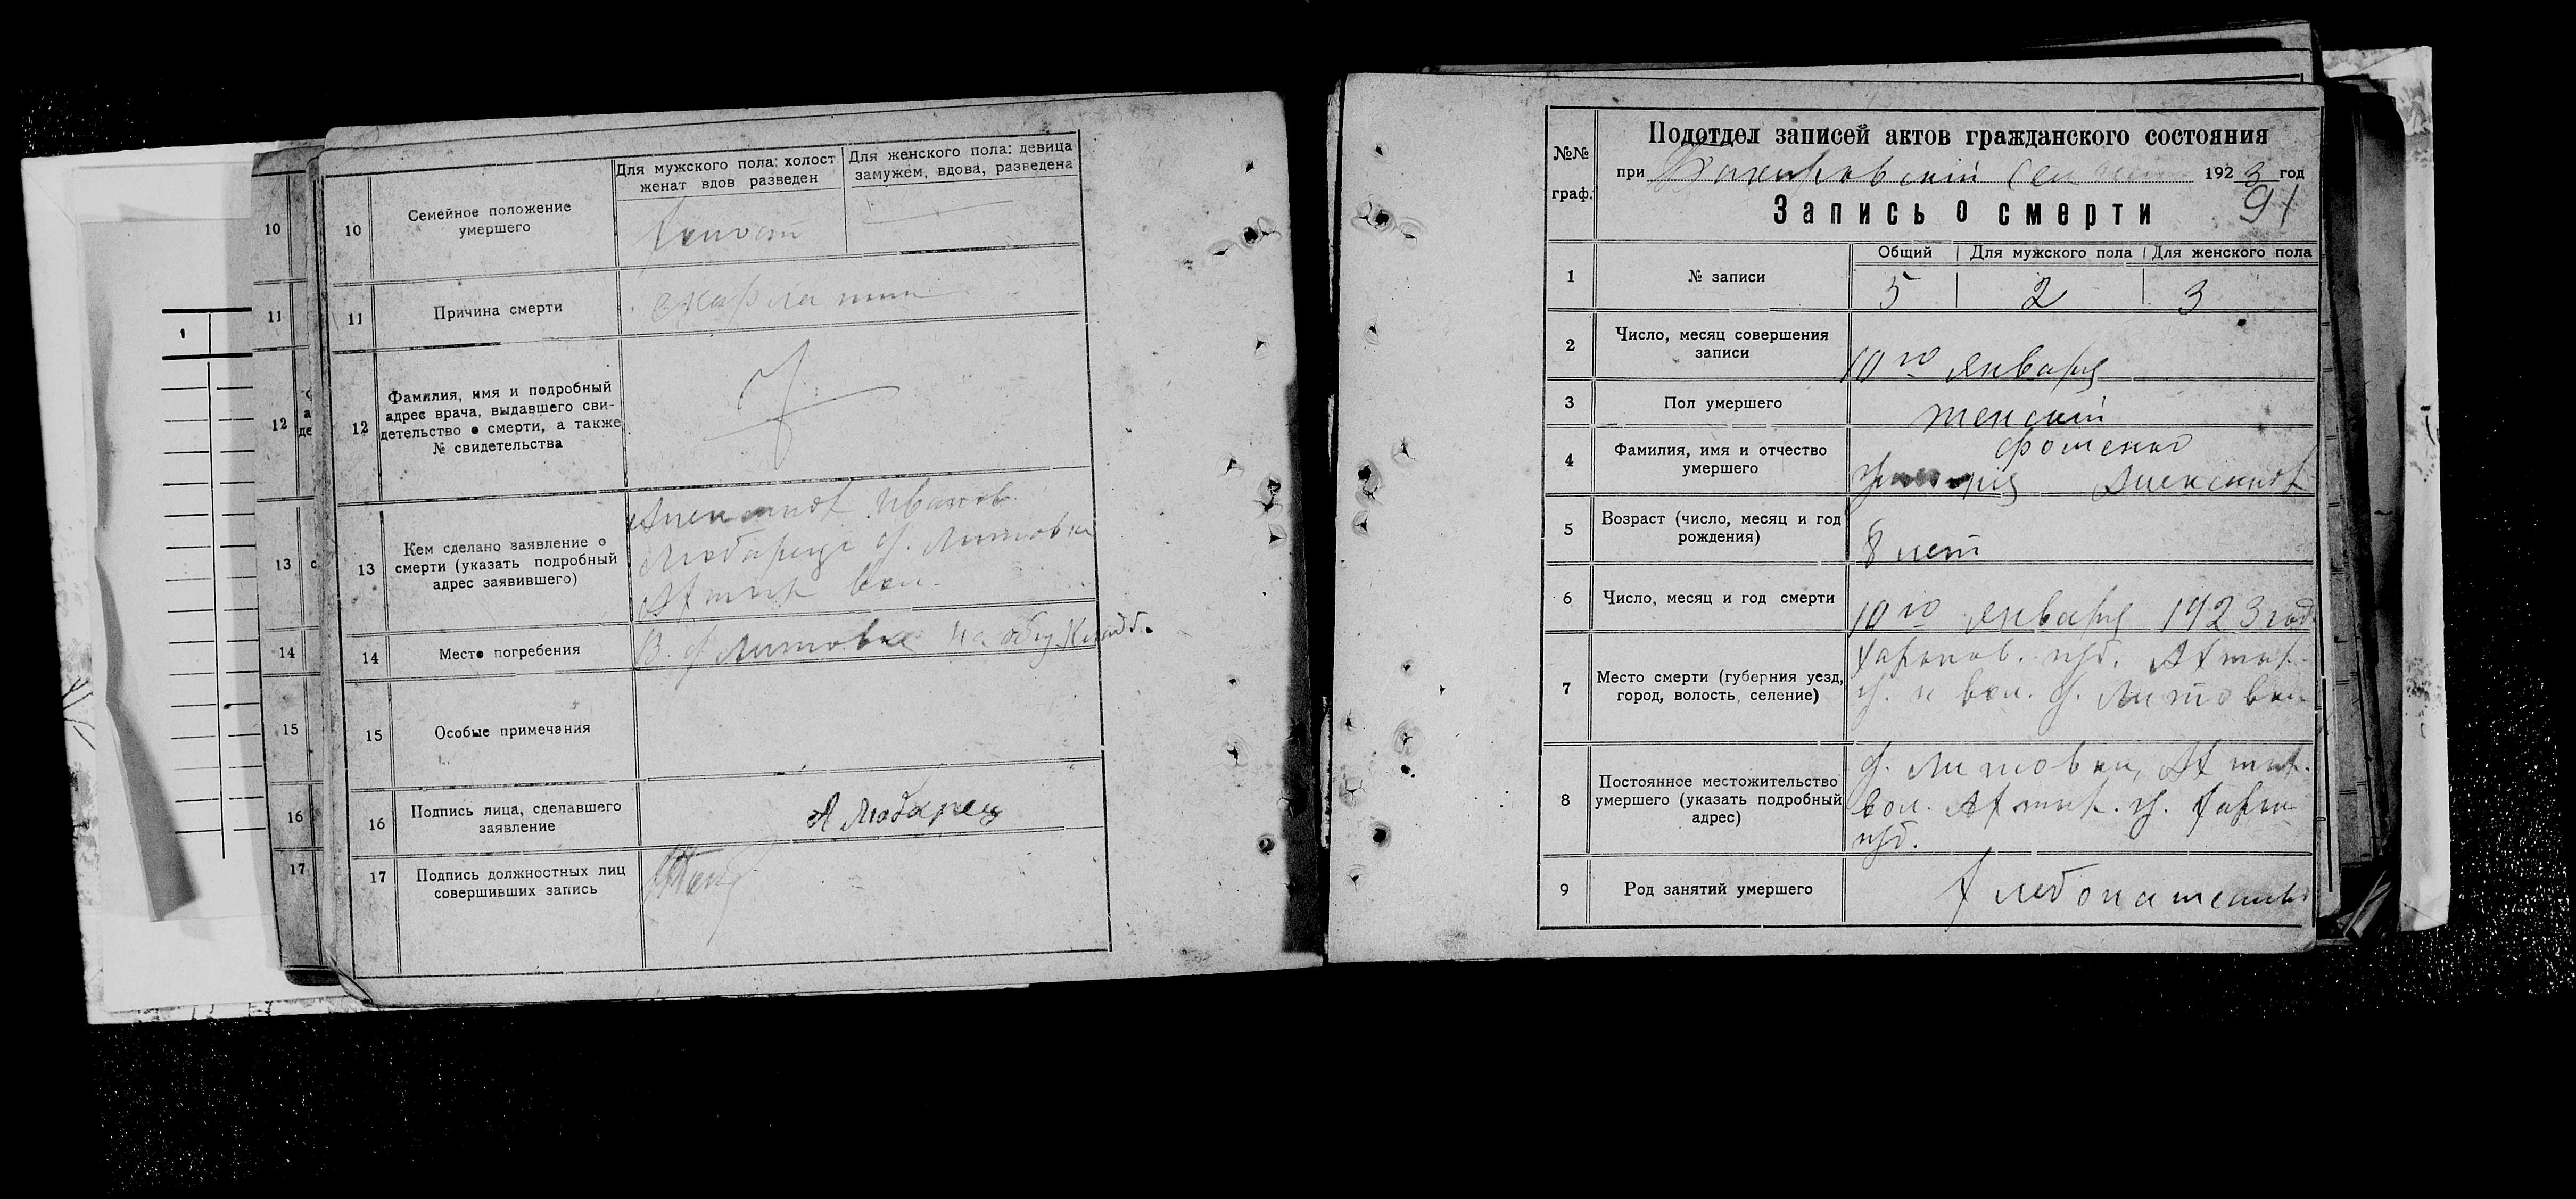 10
11
12
13
14
15
16
17
1
10
Семейное положение
умершего
Для мужского пола: холост
женат вдов разведен
Для женского пола: девица
замужем, вдова, разведена
холост
11
Причина смерти
скарлатина
12
Фамилия, имя и подробный
адрес врача, выдавшего сви-
детельство о смерти, а также
№ свидетельства
13
Кем сделано заявление о
смерти (указать подробный
адрес заявившего)
Александр Иванов
Любарец х. Литовка
Ахтыр вол.
14
Место погребения
В. х. Литовке на общ. кладб.
15
Особые примечания
16
Подпись лица, сделавшего
заявление
А Любарец
17
Подпись должностных лиц
совершивших запись
№№
граф.
Подотдел записей актов гражданского состояния
при 1923 год
Запись о смерти
91
1
№ записи
Общий
Для мужского пола
Для женского пола
5
2
3
2
Число, месяц совершения
записи
10го января
3
Пол умершего
женский
4
Фамилия, имя и отчество
умершего
Фоменко
Александ
5
Возраст (число, месяц и год
рождения)
8 лет
6
Число, месяц и год смерти
10го января 1923 год
7
Место смерти (губерния уезд,
город, волость, селение)
Харьков. губ. Ахтыр.
у. и вол. х. Литовки
8
Постоянное местожительство
умершего (указать подробный
адрес)
х. Литовки, Ахтыр.
вол. Ахтыр. у. Харьк
губ.
9
Род занятий умершего
Хлебопашество